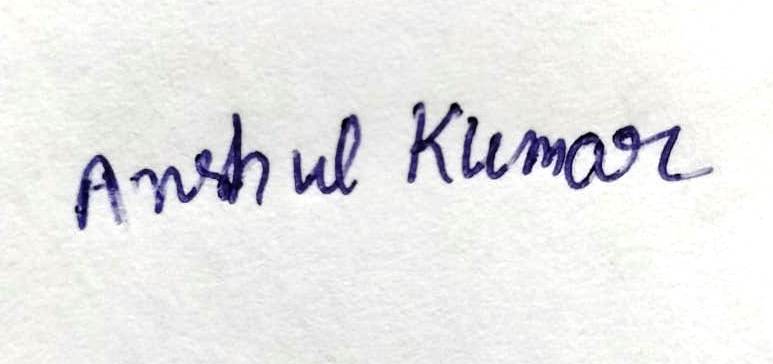 Anshul Kumar